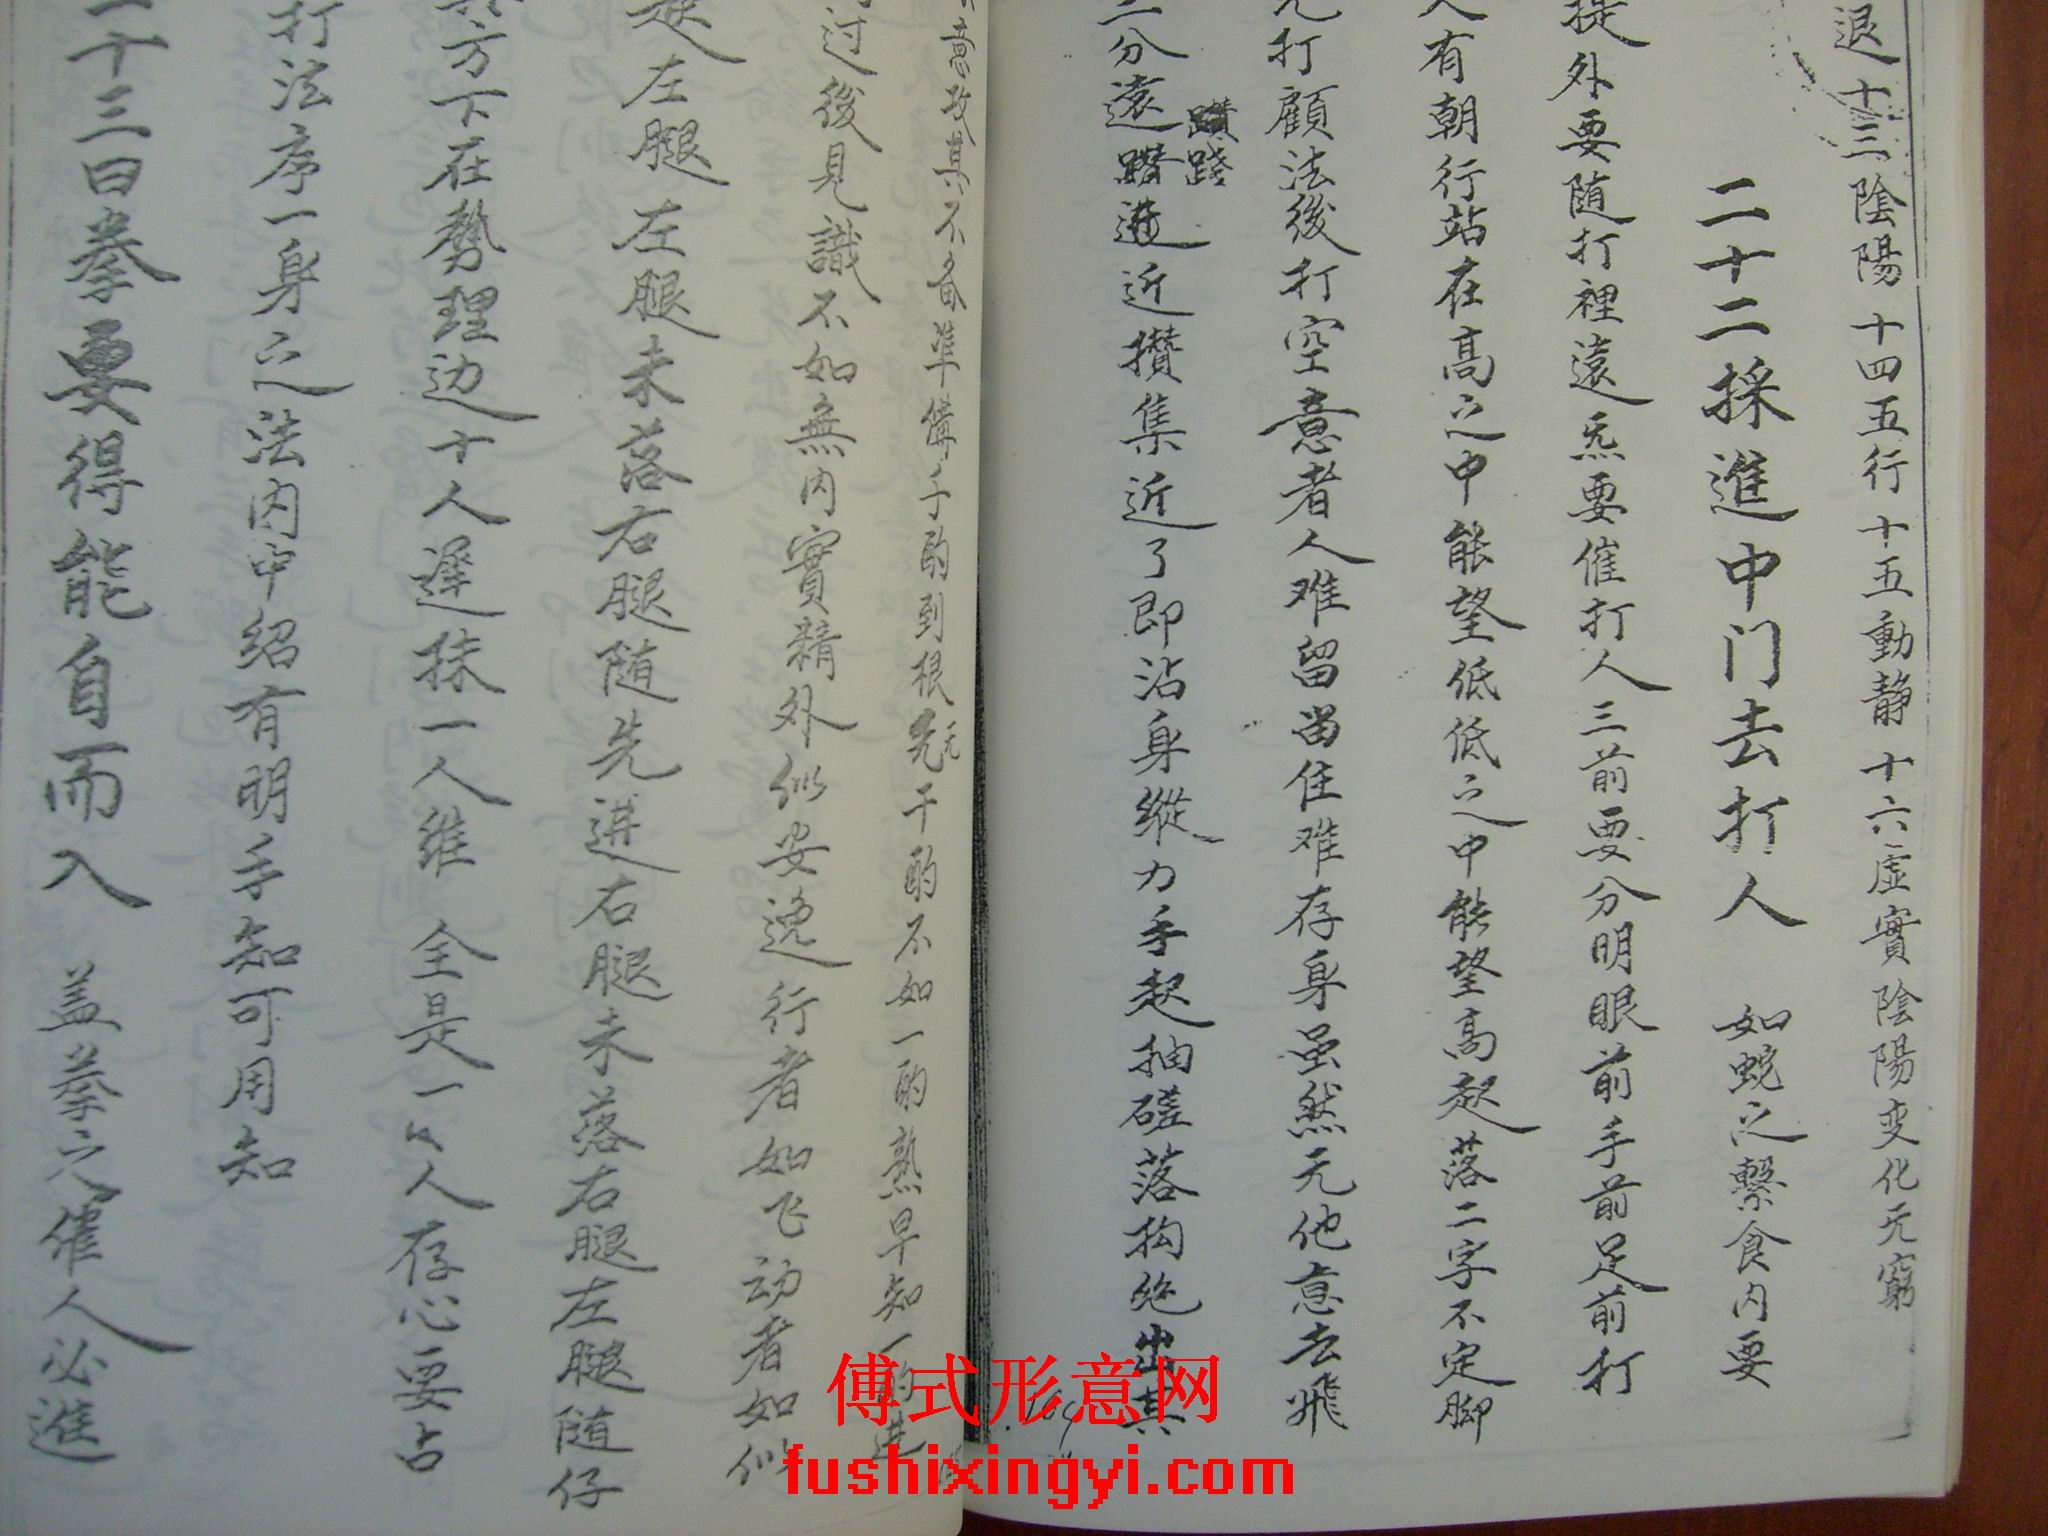 退十三陰陽十四五行十五動静十六虚實陰陽变化无窮
二十二採進中门去打人 如蛇之繫食内要
提外要随打裡遠炁要催打人三前要分明眼前手前足前打
人有朝行站在高之中能望低低之中能望高起落二字不定脚
打顧法後打空意者人难留畄住难存身虽然无他意去飛
二分遠躦進近攢集近了即沾身縱力手起抽磋落拘绝出其
踐
不备準備千酌到根先干酌不如一酌熟早知一酌進
无
过後見識不如無内實精外似安逸行者如飞动者如
左腿左腿未落右腿随先進右腿未落右腿左腿随仔
方下在勢理边十人遅抹一人維 全是一人存心要占
打法序一身之法内中绍有明手知可用知
二十三曰拳要得能自而入 盖拳之催人必進
傅式形意网
fushixingyi.com